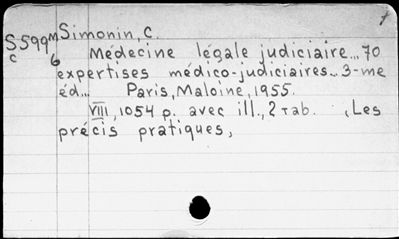 Simonin, C.
S599M
c 6 Médecine légale judiciaire... 70
expertises médico-judiciaires... 3-me
éd... Paris, Maloine, 1955.
VIII, 1054 p. avec ill., 2 tab. (Les
précis pratiques,